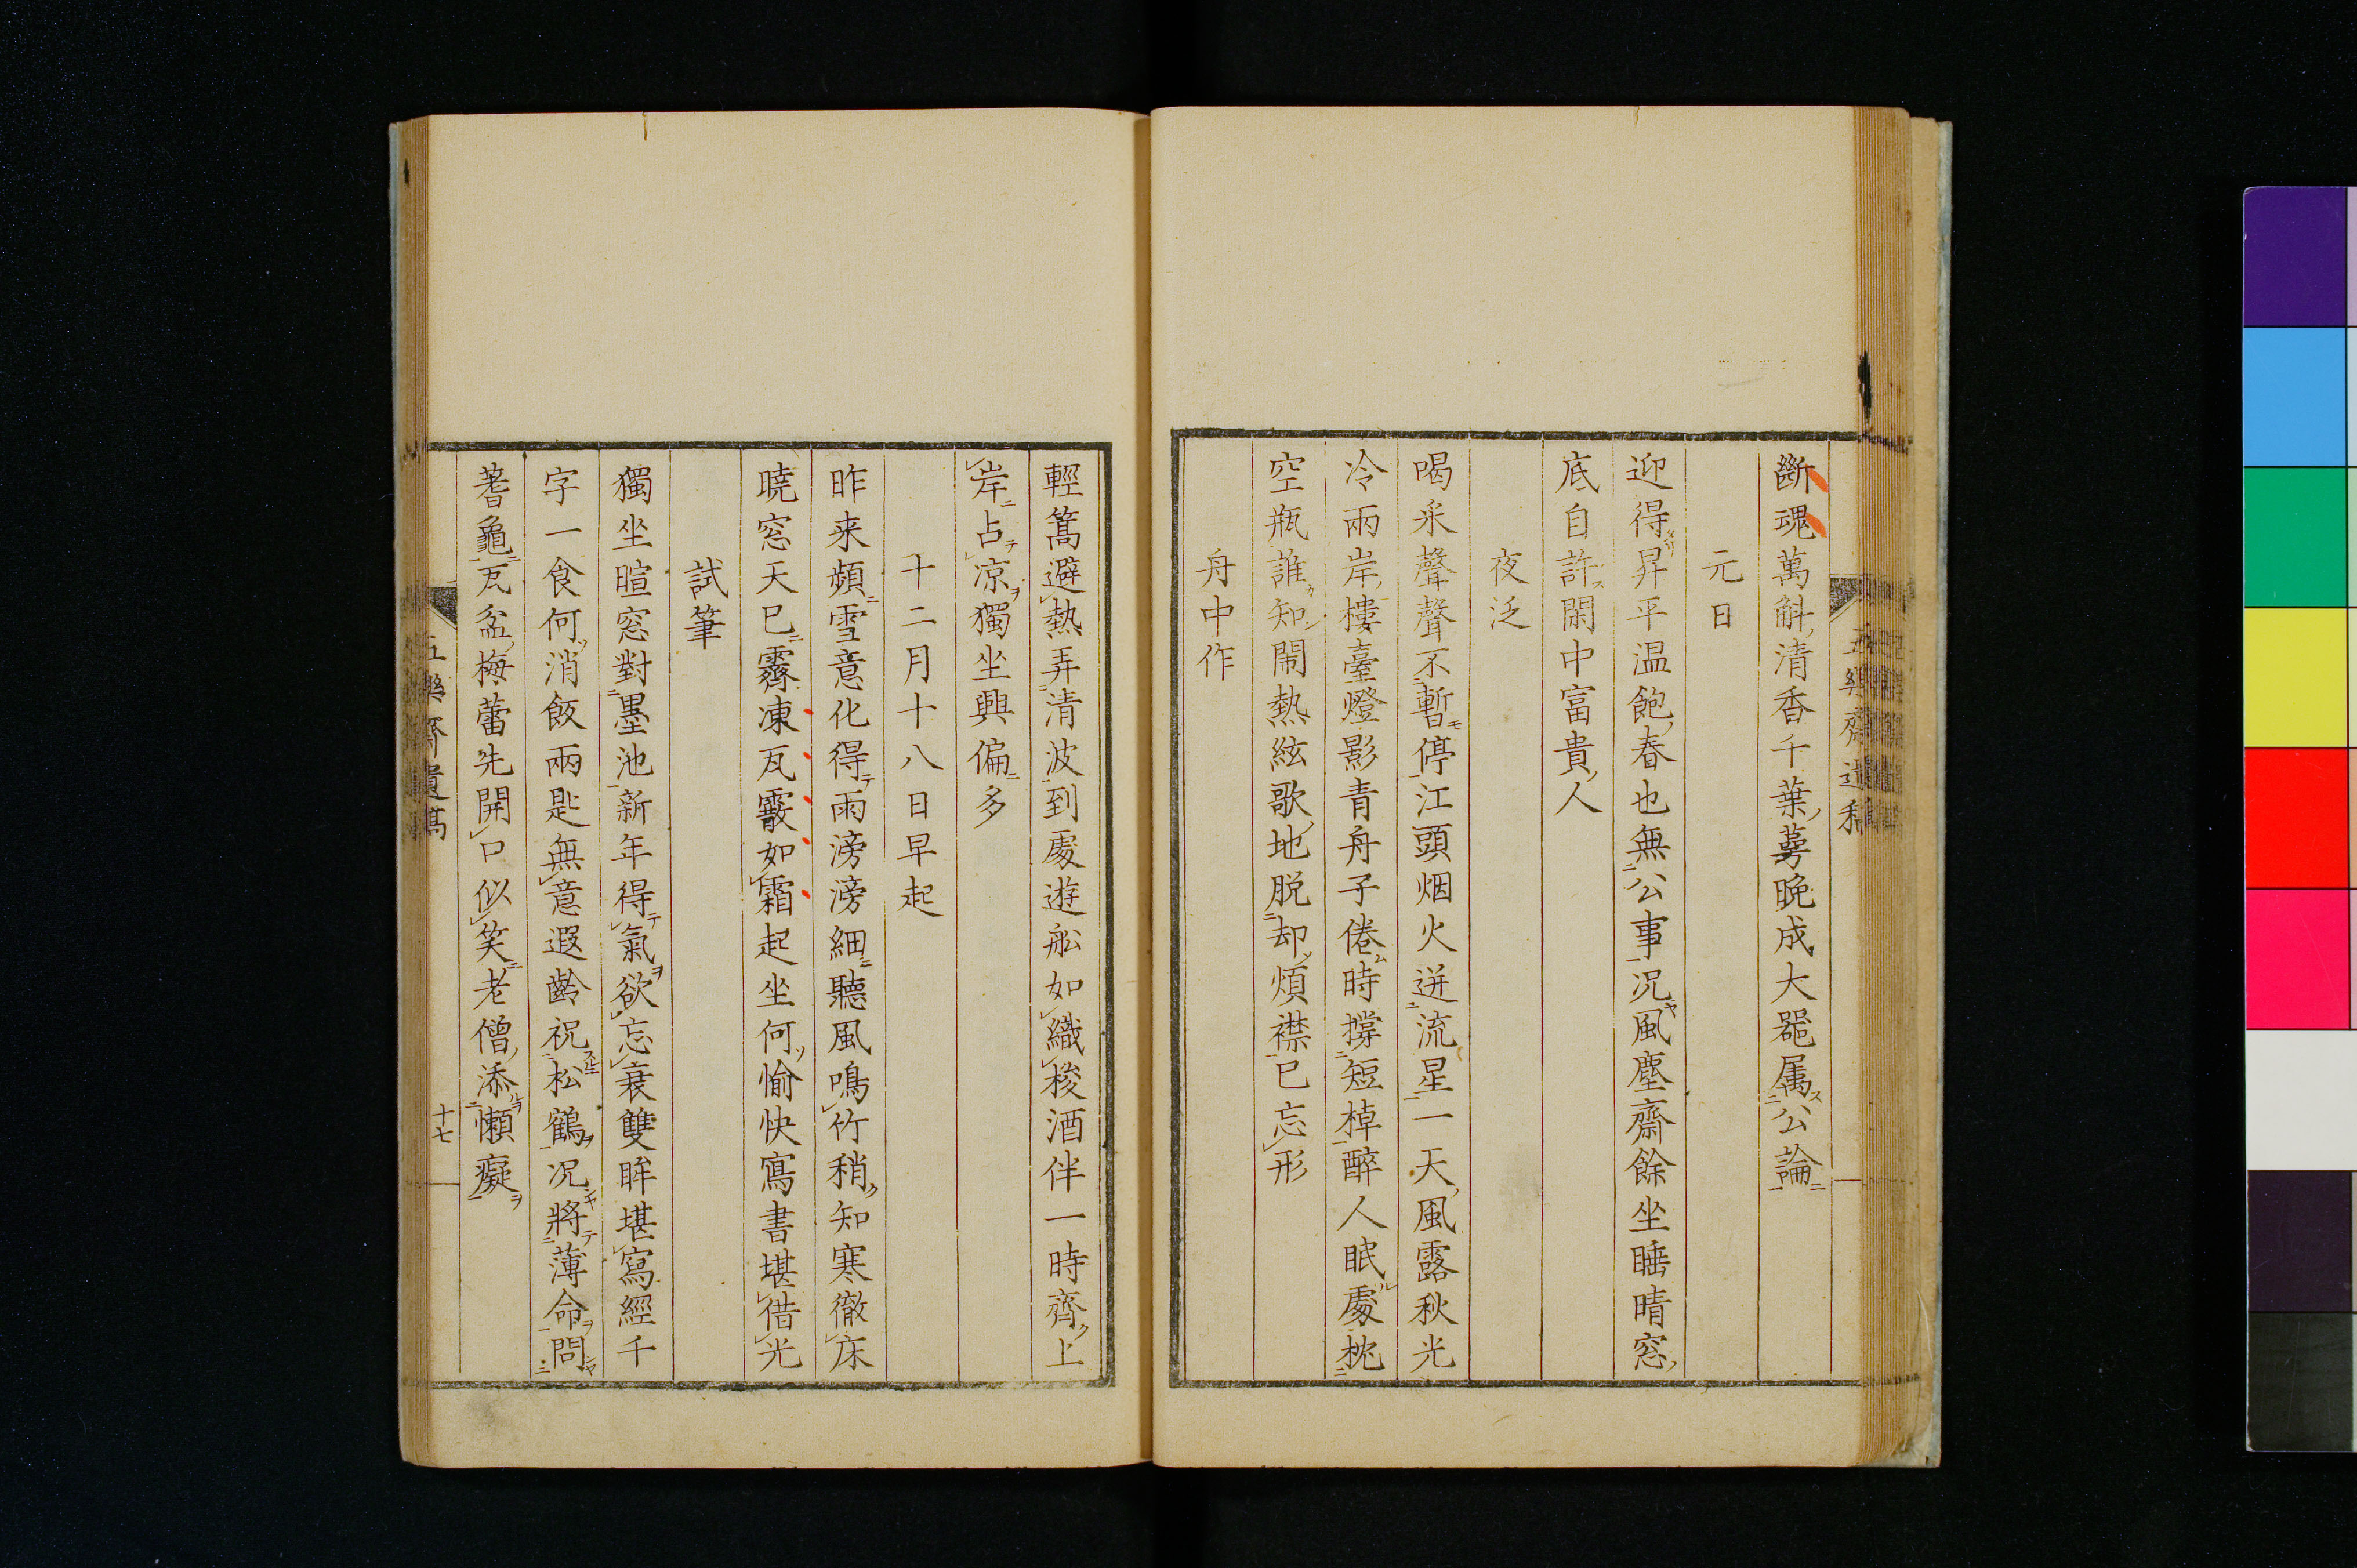 斷魂萬斛清香千葉蕚晩成大噐属公論
元日
迎得昇平温飽春也無公事况風塵齋餘坐睡晴窓
底自許閑中富貴人
夜泛
喝釆聲聲不暫停江頭烟火迸流星一天風露秋光
冷兩岸樓臺燈影青舟子倦時撐短棹醉人眠處枕
空瓶誰知鬧熱絃歌地脱却煩襟已忘形
舟中作
五樂齋遺稿
輕篙避熱弄清波到處遊舩如織梭酒伴一時齊上
岸占凉獨坐興偏多
十二月十八日早起
昨来頻雪意化得雨滂滂細聽風鳴竹稍知寒徹床
曉窓天已霽凍瓦霰如霜起坐何愉快寫書堪借光
試筆
獨坐暄窓對墨池新年得氣欲忘衰雙眸堪寫經千
字一食何消飯兩匙無意遐齡祝松鶴况將薄命問
蓍龜瓦盆梅蕾先開口似笑老僧添懶癡
五樂齋遺稿
十七